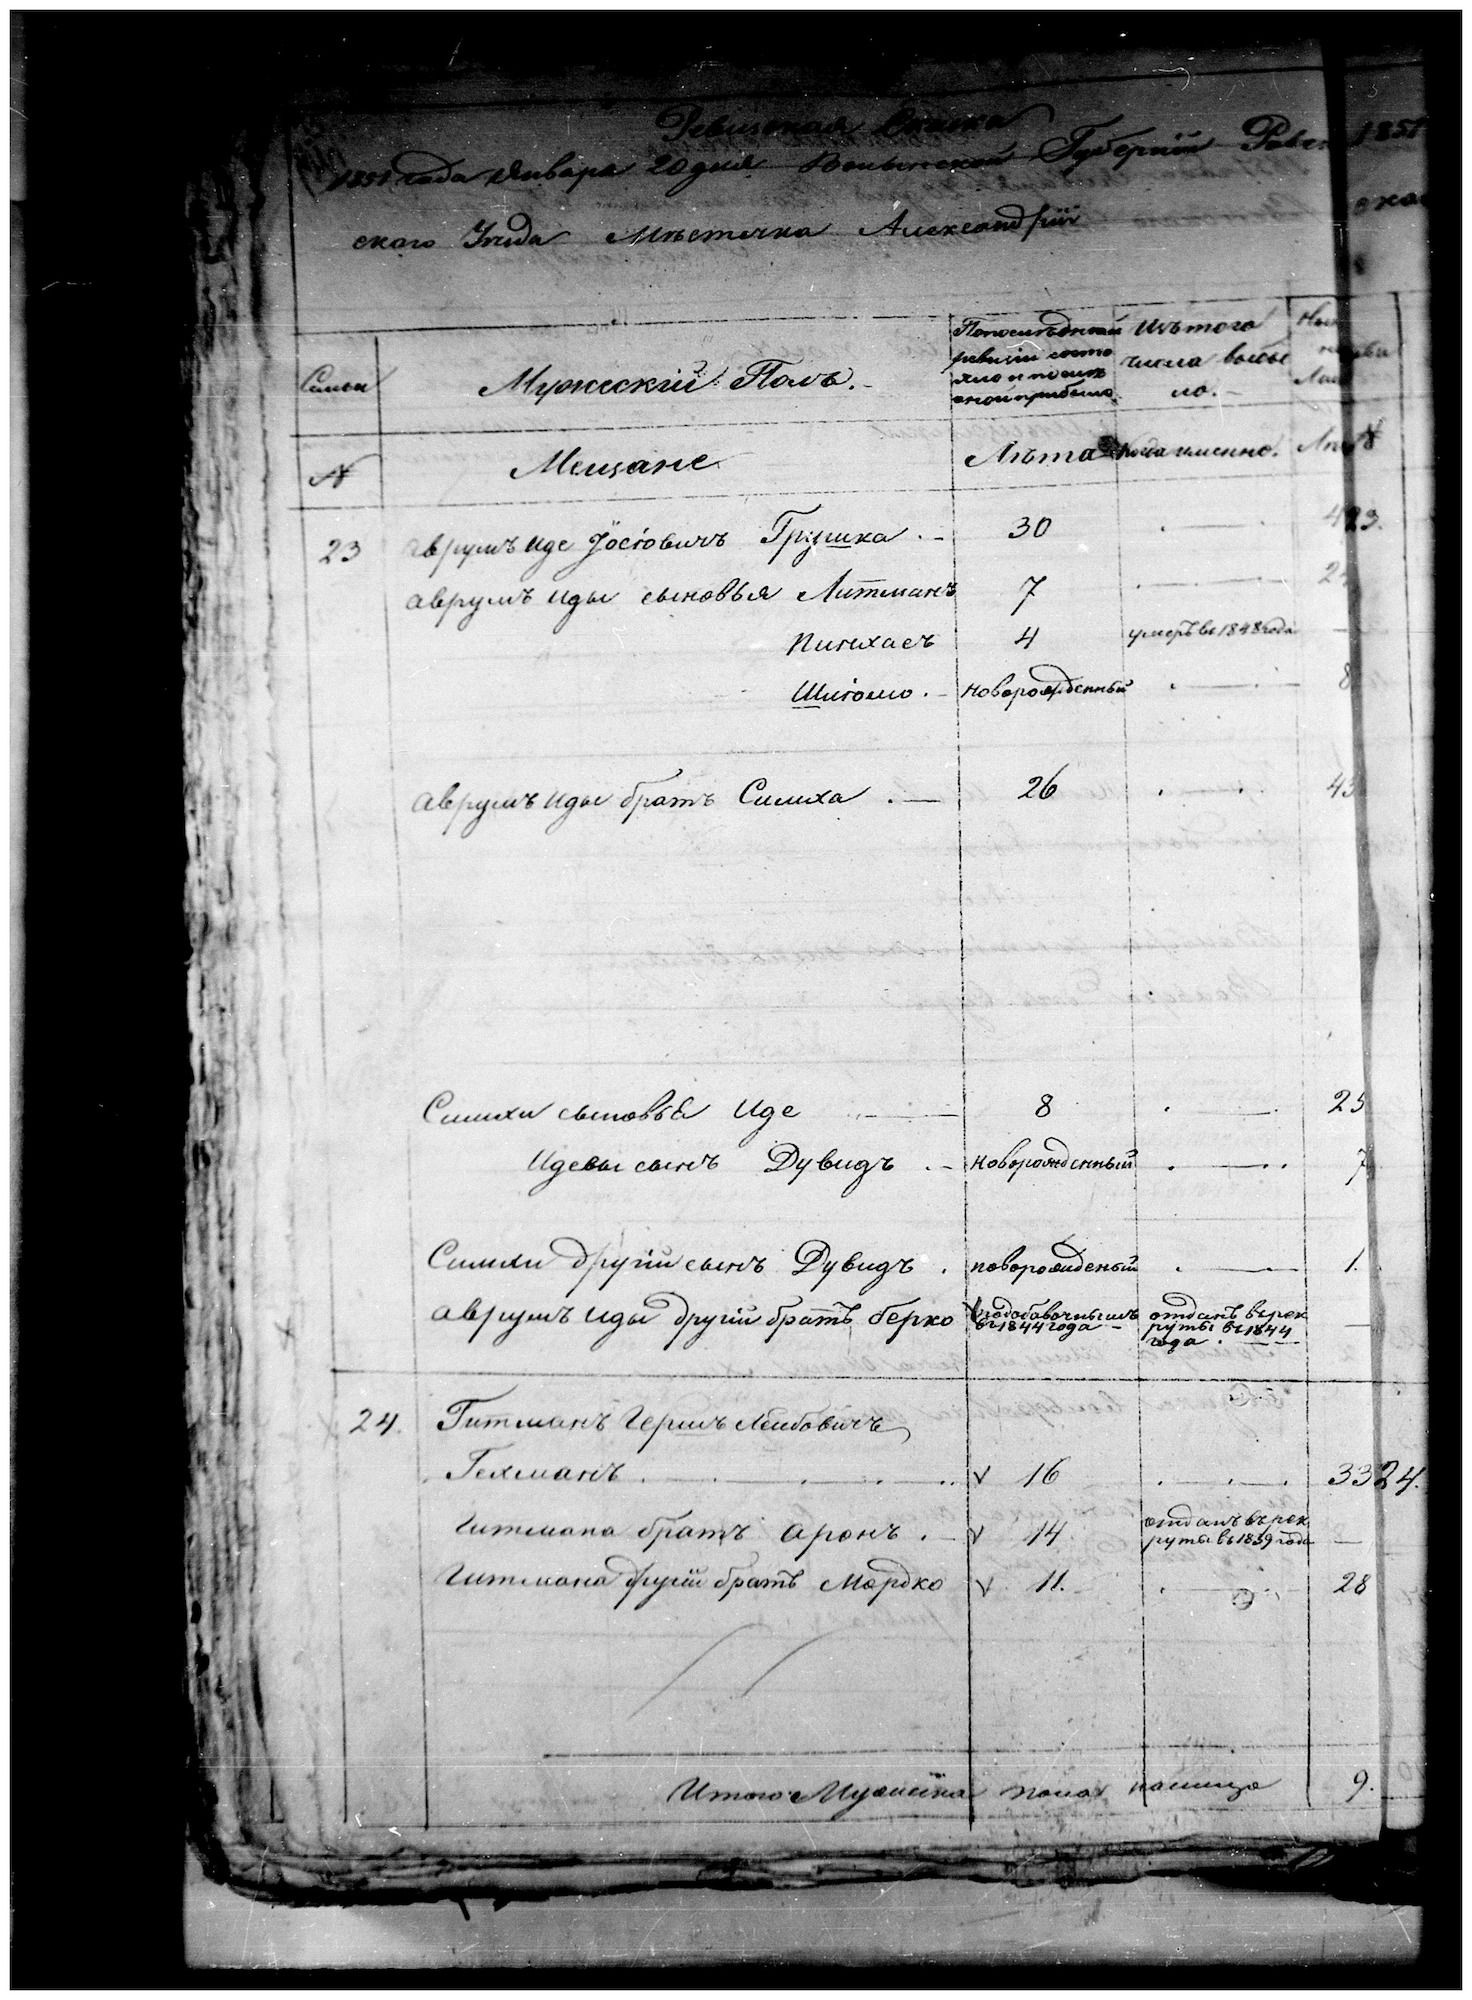 Ревизская Сказка
1851 года Января 20 дня Волынской Губернїи Ровен
1851
ского Уезда Мѣстечка Александрїи
ска
Семьи
Мужескїй Полъ.
По последней ревизїи состо яло и после оной прибыло
Изъ того числа выбы ло.
№
Мещане
Лѣта
Когда именно.
23 Аврумъ Иде Йосїовичъ Грушка 30
23.
Аврумъ Иды сыновья Литманъ 7
Пинхасъ 4 умеръ въ 1848 года
Шлїомо новорожденный 8
Аврумъ Иды братъ Симха 26 43
Симхи сыновья Иде 8 23
Идевы сынъ Дувидъ новорожденный 7
Симхи другїй сынъ Дувидъ новорожденый 1.
Аврумъ Иды другїй братъ Берко
въ 1844 года
отданъ въ рек
руты въ 1844
года
24. Гитманъ Гершъ Лейбовичъ
Гехманъ 16 33
24.
Гитмана братъ Аронъ 14 отданъ въ рек
руты въ 1839 года
Гитмана другїй братъ Мордко 11. 28
Итого Мужеска пола налицо 9.